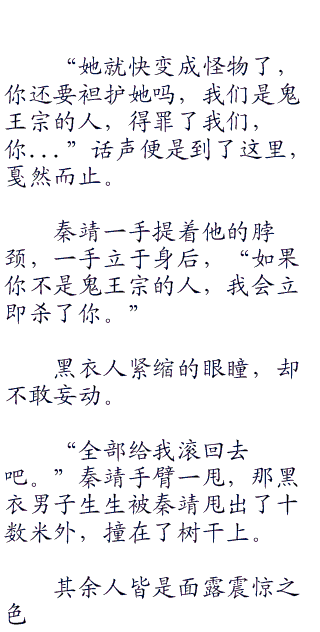 “她就快变成怪物了，
你还要袒护她吗，我们是鬼
王宗的人，得罪了我们，
你...”话声便是到了这里，
戛然而止。
秦靖一手提着他的脖
颈，一手立于身后，“如果
你不是鬼王宗的人，我会立
即杀了你。”
黑衣人紧缩的眼瞳，却
不敢妄动。
“全部给我滚回去
吧。”秦靖手臂一甩，那黑
衣男子生生被秦靖甩出了十
数米外，撞在了树干上。
其余人皆是面露震惊之
色